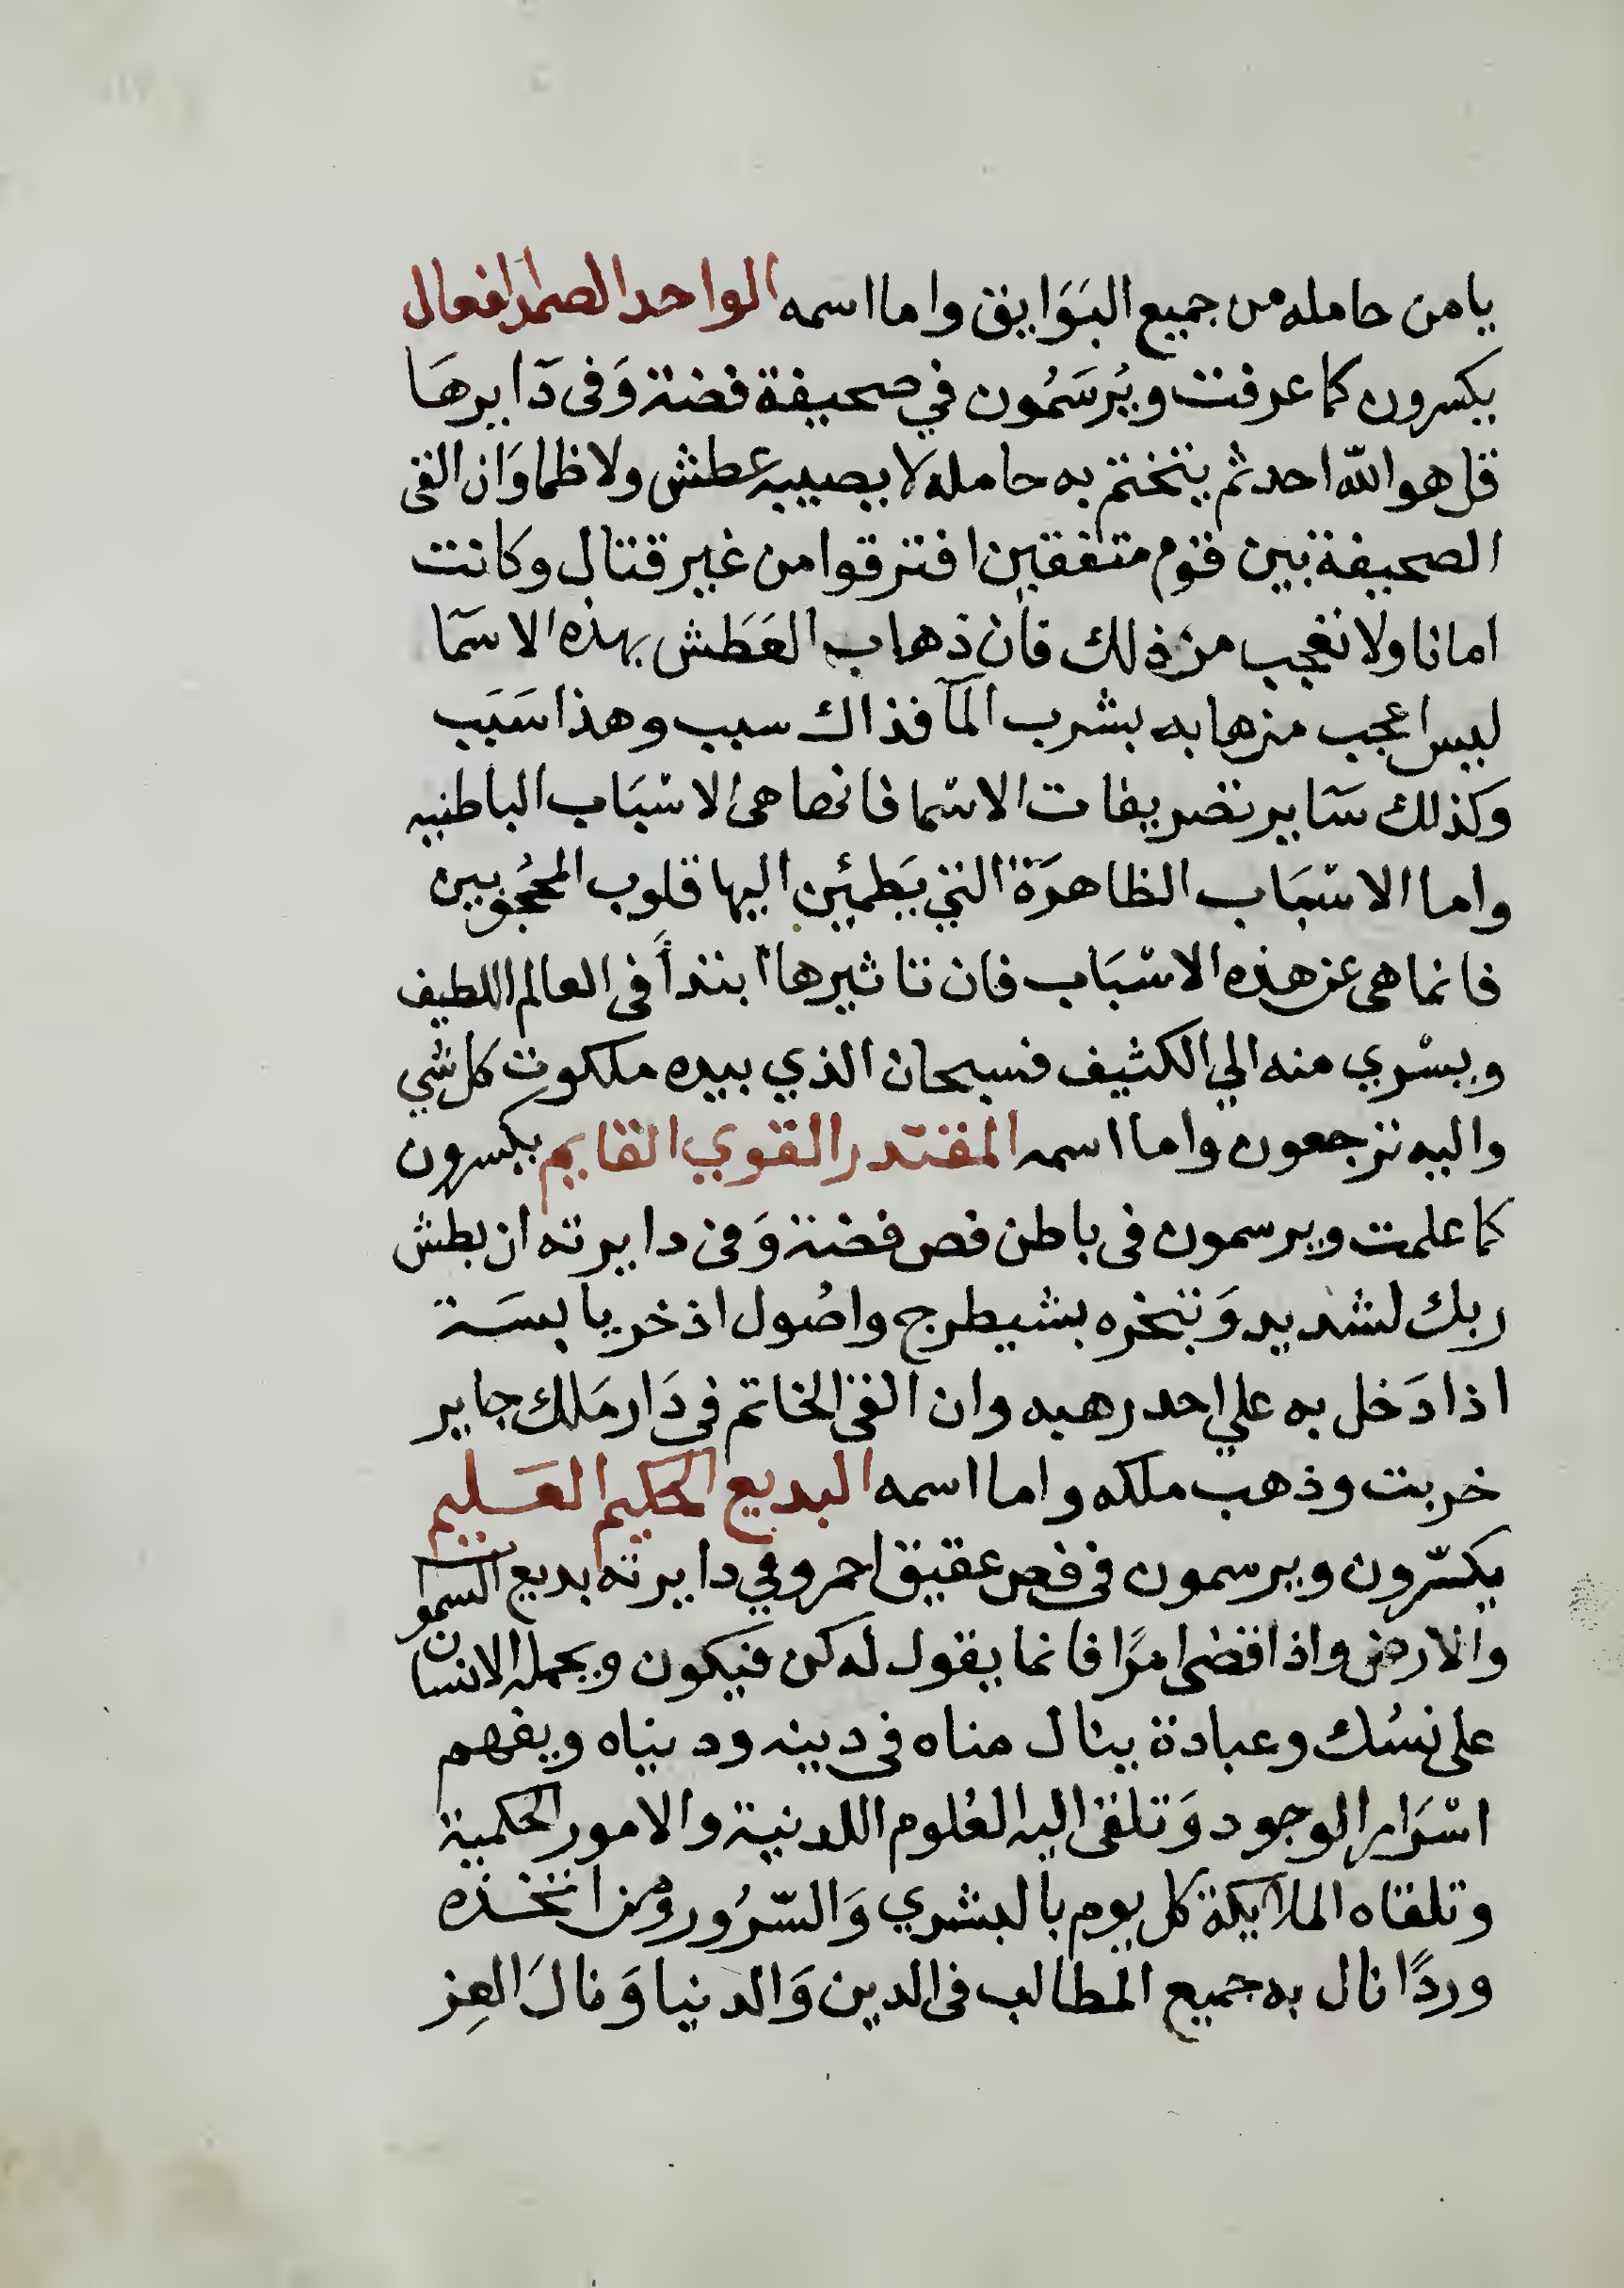 يامن حامله من جميع البَوَايق واما اسمه الواحد الصمد افعال
يكسرون كما عرفت ويُرسَمُون في صحيفة فضة وَفى دَايرهَا
قل هو الله احد ثم يتختم به حامله لا يصيبه عطش ولا ظما وَان القى
الصحيفة بين قوم متفقين افترقوا من غير قتال وكانت
امانا ولا تعجب من ذلك فان ذهاب العَطَش بهذه الاسمَا
ليس اعجب من ذهابه بشرب المآ فذاك سبب وهذا سَبَب
وكذلك سَاير تصريفات الاسما فانها هى الاسْبَاب الباطنيه
واما الاسْبَاب الظاهرَة التي يَطمئن اليها قلوب المحجُوبين
فانما هى عن هذه الاسْبَاب فان تاثيرها ابتدأً فى العالم اللطيف
ويسْري منه الي الكثيف فسبحان الذي بيده ملكوت كل شي
واليه ترجعون واما اسمه المقتدر القوي القايم يكسرون
كما علمت ويرسمون فى باطن فص فضة وَفى دايرته ان بطش
ربك لشديد وَبخره بشيطرج واصُول اذخر يابسَة
اذا دَخل به علي احد رهبه وان القى الخاتم فى دَار مَلك جاير
خربت وذهب ملكه واما اسمه البديع الحكيم العَليم
يكسّرون ويرسمون فى فص عقيق احمر وفي دايرته بديع السموا
والارض واذا قضى امرًا فانما يقول له كن فيكون ويحمله الانسان
على نسُك وعبادة ينال مناه فى دينه ودنياه ويفهم
اسْرَار الوجود وَتلقى اليه العُلوم اللدنية والامور الحكمية
وتلقاه الملايكة كل يوم بالبشري وَالسّرُور ومن اتخذه
وردًا نال به جميع المطالب فى الدين وَالدنيا وَنالَ العِز